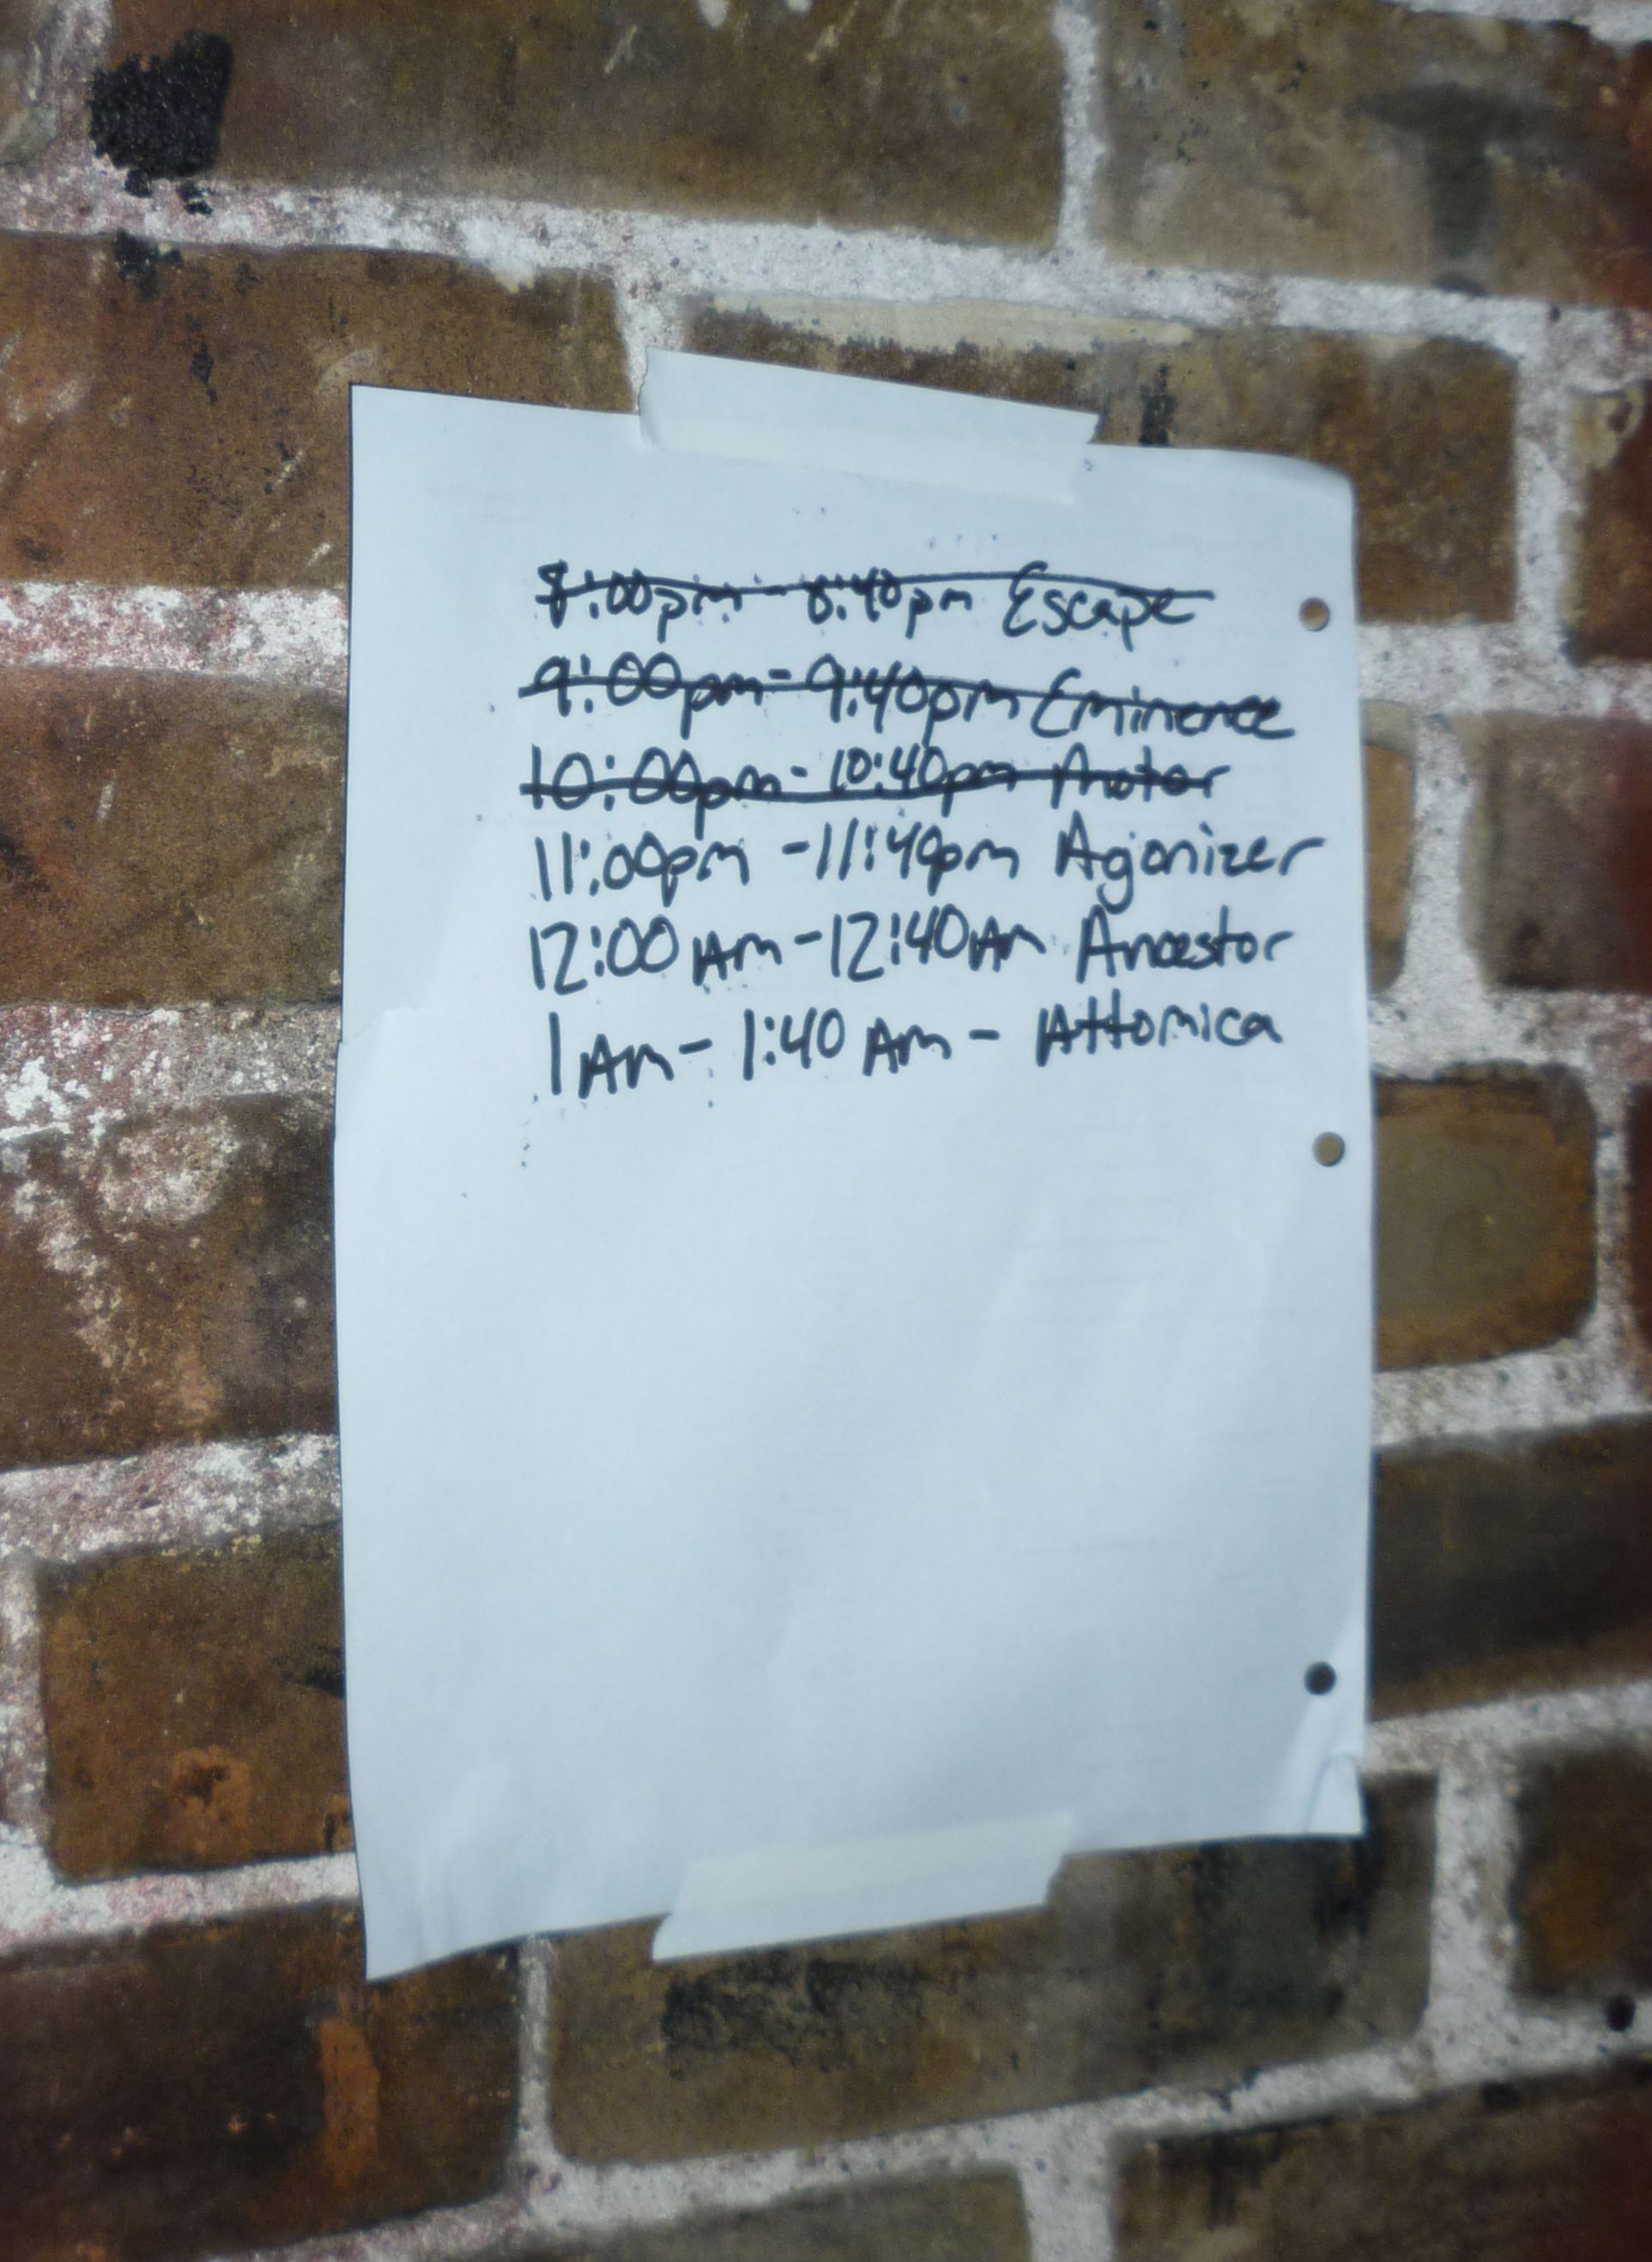 8:00pm - 8:40pm Escape
9:00pm - 9:40pm Eminence
10:00pm - 10:40pm Motor
11:00pm - 11:40pm Agonizer
12:00 Am - 12:40 Am Ancestor
1 Am - 1:40 Am - Attomica